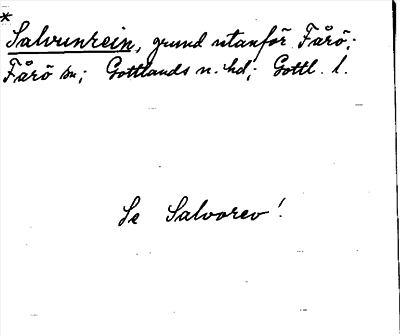 *
Salvunrein, grund utanför Fårö;
Fårö sn; Gottlands n. hd; Gottl. l.
Se Salvorev!